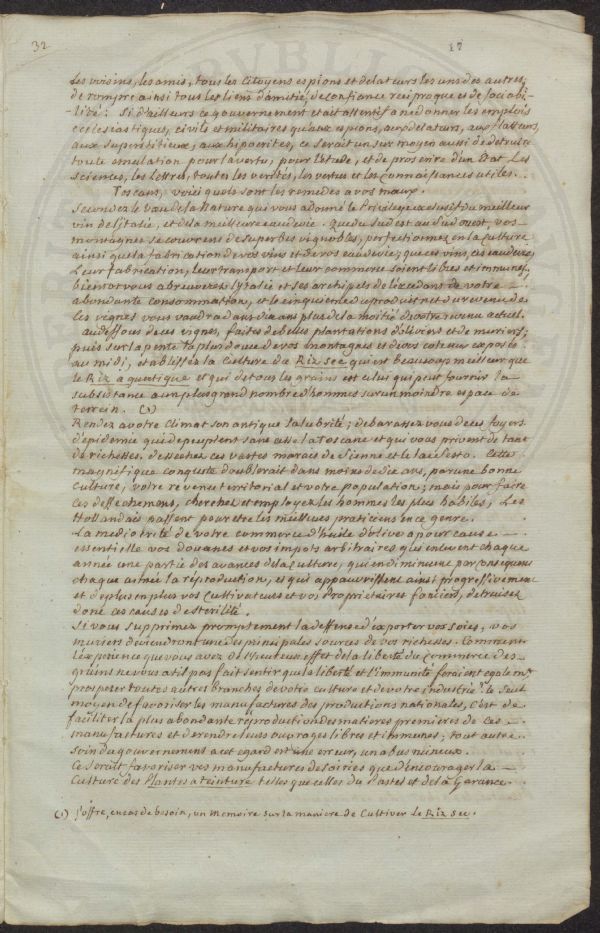 32
17
les voisins, les amis, tous les Citoyens espions et delateurs les uns des autres,
de rompre ainsi tous les liens d'amitié, de confiance reciproque et de sociabi-
-lité: Si d'ailleurs ce gouvernement etait attentif a ne donner les emplois
ecclesiastiques, civils et militaires qu'aux espions, aux delateurs, aux flatteurs,
aux superstitieux, aux hipocrites, ce serait un sur moyen aussi de detruire
toute emulation pour la vertu, pour l'etude, et de proscrire d'un Etat Les
sciences, les Lettres, toutes les verités, les vertus et les connaissances utiles.
Toscans, voici quels sont les remedes a vos maux.
Secondez le vœu de la Nature qui vous a donné le Privilege exclusif du meilleur
vin de l'italie, et de la meilleure eau de vie. Que du Sud est au Sud ouest, vos
montagnes se couvrent de superbes vignobles, perfectionnez en la culture
ainsi que la fabrication de vos vins et de vos eaux de vie; que ces vins, ces eaux de vie,
leur fabrication, leur transport et leur commerce soient libres et immunes,
bientot vous abreuverez l'italie et ses archipels de l'excedant de votre
abondante consommation, et le cinquieme du produit net du revenu de
les vignes vous vaudra dans dix ans plus de la moitié de votre revenu actuel.
Audessous de ces vignes, faites de belles plantations d'oliviers et de muriers;
puis sur la pente la plus douce de vos montagnes et de vos coteaux exposée
au midi, etablissez la Culture du Riz sec qui est beaucoup meilleur que
le Riz aquatique et qui de tous les grains est celui qui peut fournir la
subsistance a un plus grand nombre d'hommes sur un moindre espace de
terrein. (1)
Rendez a votre Climat son antique salubrité; debarassez vous de ces foyers
d'epidemie qui depeuplent sans cesse la Toscane et qui vous privent de tant
de richesses. dessechez ces vastes marais de Sienne et le lac de Cesto. Cette
magnifique conquete doublerait dans moins de dix ans, par une bonne
Culture, votre revenu territorial et votre population; mais pour faire
ces dessechemens, cherchez et employez les hommes les plus habiles; Les
Hollandais passent pour etre les meilleurs praticiens en ce genre.
La mediocrité de votre commerce d'huile d'olive a pour cause
essentielle vos douanes et vos impots arbitraires qui enlevent chaque
année une partie des avances de la Culture, qui en diminuent par consequent
chaque année la reproduction, et qui appauvrissent ainsi progressivement
et de plus en plus vos Cultivateurs et vos Proprietaires fonciers, detruisez
donc ces causes de sterilité.
Si vous supprimez promptement la deffense d'exporter vos soies, vos
muriers deviendront une des principales sources de vos richesses. Comment
l'experience que vous avez de l'heureux effet de la liberté du commerce des
grains ne vous a t'il pas fait sentir que la liberté et l'immunité feraient egalemt.
prosperer toutes autres branches de votre culture et de votre industrie? le seul
moyen de favoriser les manufactures des productions nationales, c'est de
faciliter la plus abondante reproduction des matieres premieres de ces
manufactures et de rendre leurs ouvrages libres et immunes; tout autre
soin du gouvernement a cet egard est une erreur, un abus ruineux.
Ce serait favoriser vos manufactures de soieries que d'encourager la
Culture des Plantes a teinture telles que celles du Pastel et de la Garance.
(1) J'offre, en cas de besoin, un memoire sur la maniere de Cultiver le Riz sec.